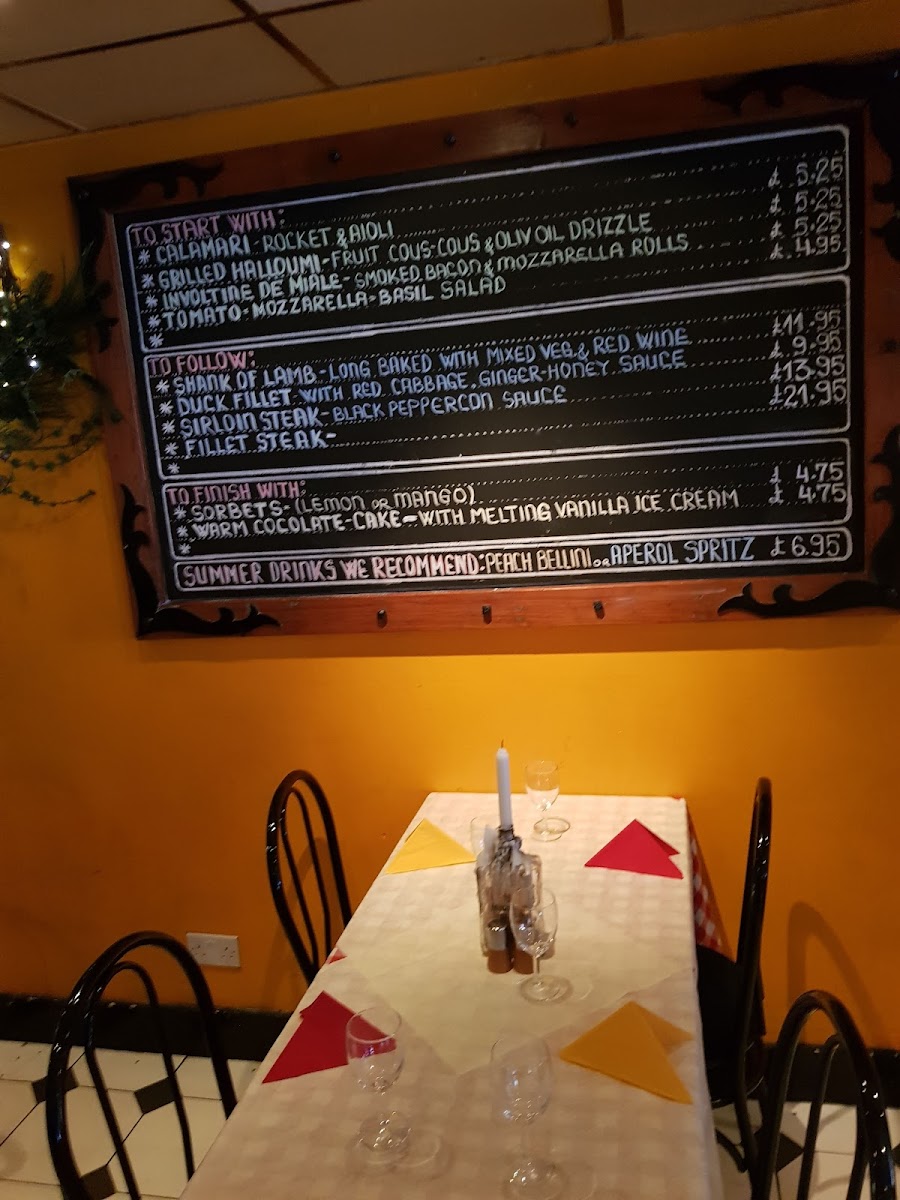 TO START WITH:
* CALAMARI - ROCKET & AIOLI £ 5.25
* GRILLED HALLOUMI - FRUIT COUS-COUS & OLIV OIL DRIZZLE £ 5.25
* INVOLTINE DE MIALE - SMOKED BACON & MOZZARELLA ROLLS £ 5.25
* TOMATO - MOZZARELLA - BASIL SALAD £ 4.95
*
TO FOLLOW:
* SHANK OF LAMB - LONG BAKED WITH MIXED VEG. & RED WINE £11.95
* DUCK FILLET WITH RED CABBAGE. GINGER-HONEY SAUCE £ 9.95
* SIRLOIN STEAK - BLACK PEPPERCON SAUCE £13.95
* FILLET STEAK - £21.95
*
TO FINISH WITH:
* SORBETS - (LEMON OR MANGO) £ 4.75
* WARM COCOLATE-CAKE - WITH MELTING VANILLA ICE CREAM £ 4.75
*
SUMMER DRINKS WE RECOMMEND: PEACH BELLINI OR APEROL SPRITZ £6.95